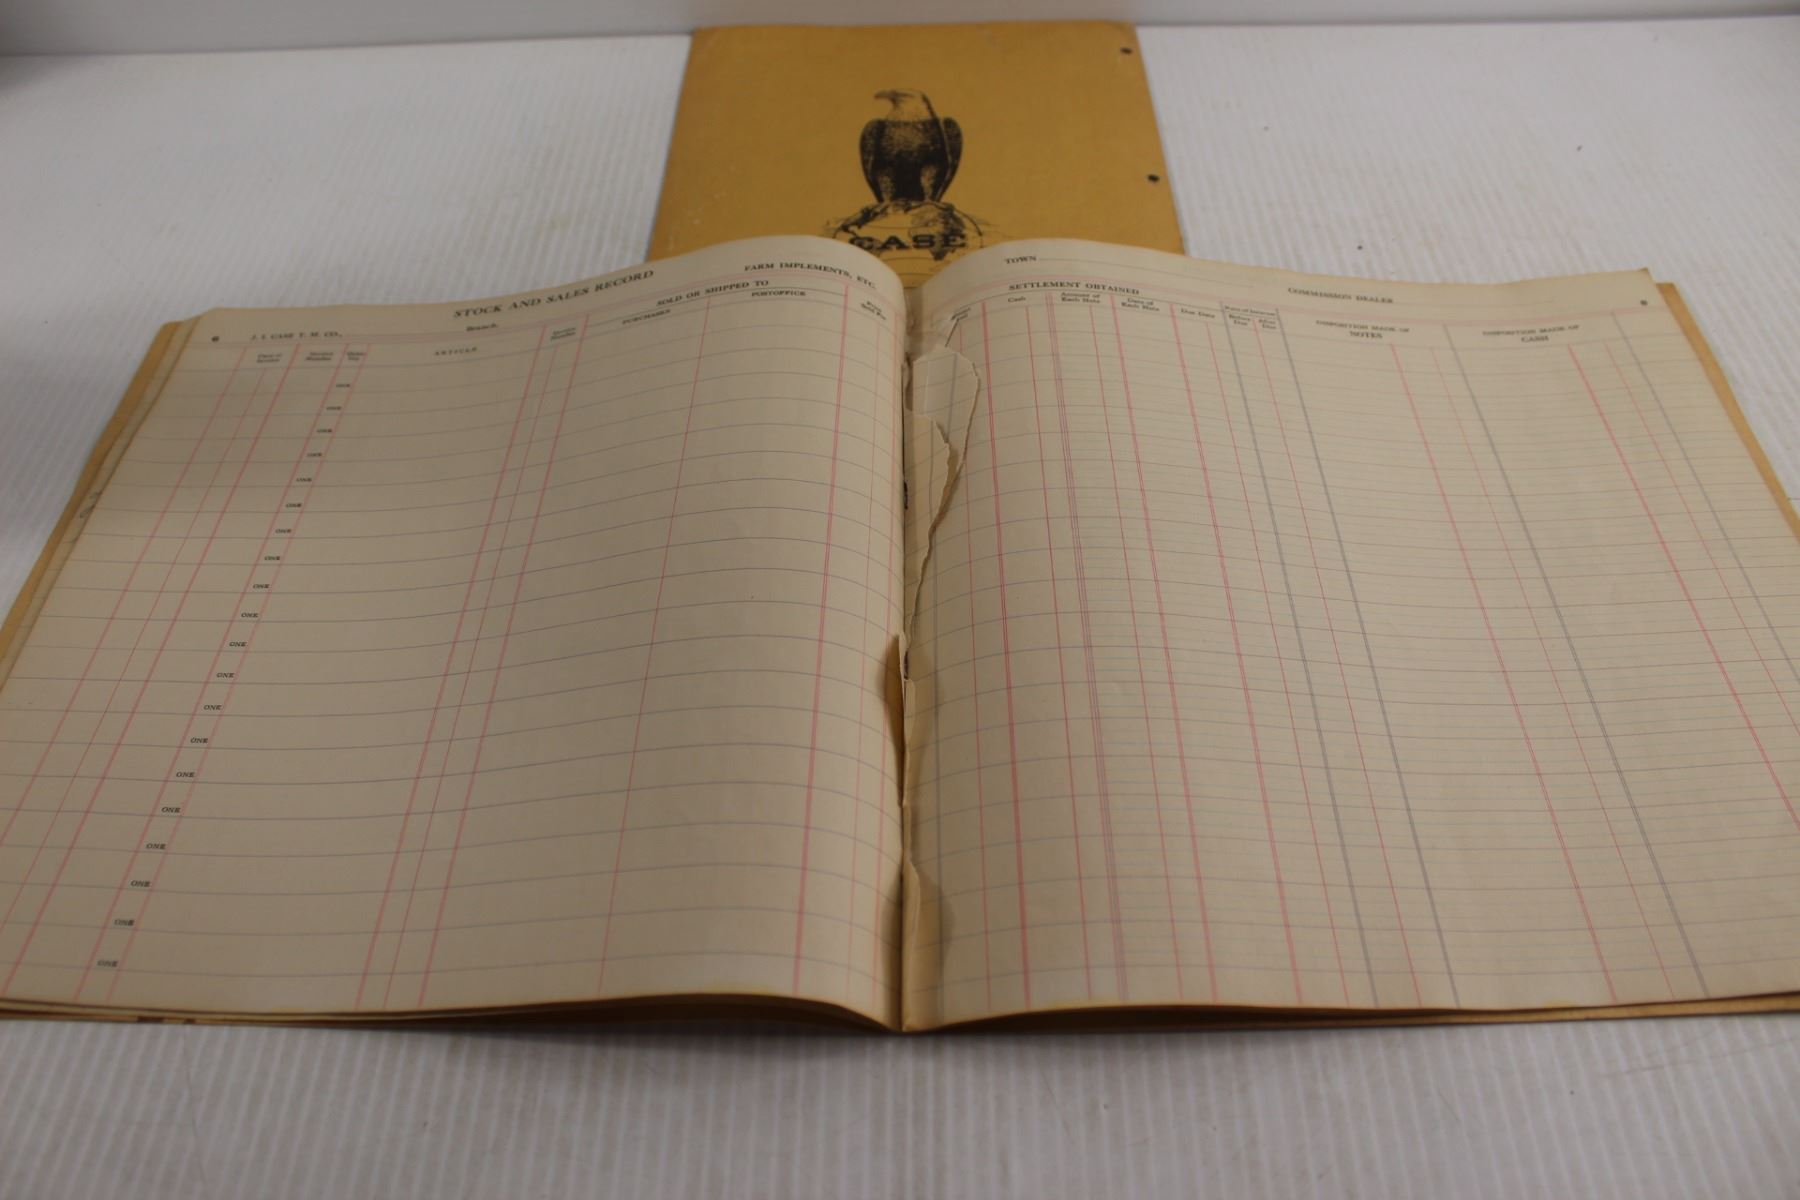 CASE
6
J. I. CASE T. M. CO.,
Branch.
STOCK AND SALES RECORD
FARM IMPLEMENTS, ETC.
Date of
Invoice
Invoice
Number
Quan-
tity
ARTICLE
Invoice
Number
SOLD OR SHIPPED TO
PURCHASER
POSTOFFICE
ONE
ONE
ONE
ONE
ONE
ONE
ONE
ONE
ONE
ONE
ONE
ONE
ONE
ONE
ONE
ONE
ONE
ONE
ONE
ONE
TOWN
COMMISSION DEALER
SETTLEMENT OBTAINED
Cash
Amount of
Each Note
Date of
Each Note
Due Date
Rate of Interest
Before
Due
After
Due
DISPOSITION MADE OF
NOTES
DISPOSITION MADE OF
CASH